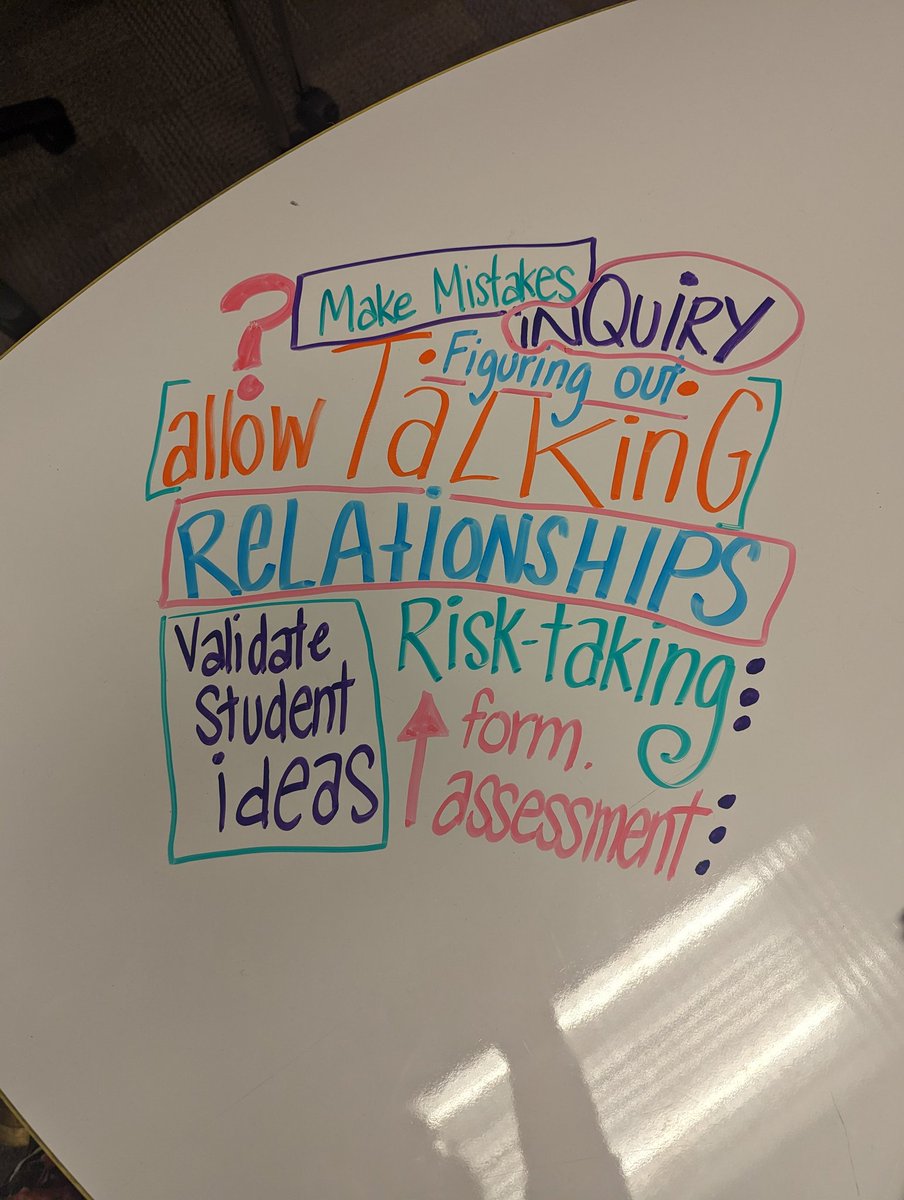 ?
Make Mistakes
iNQUiRY
Figuring out
[allow TaLKinG]
ReLAtiONSHIPS
Validate
Student
ideas
Risk-taking
↑ form.
assessment